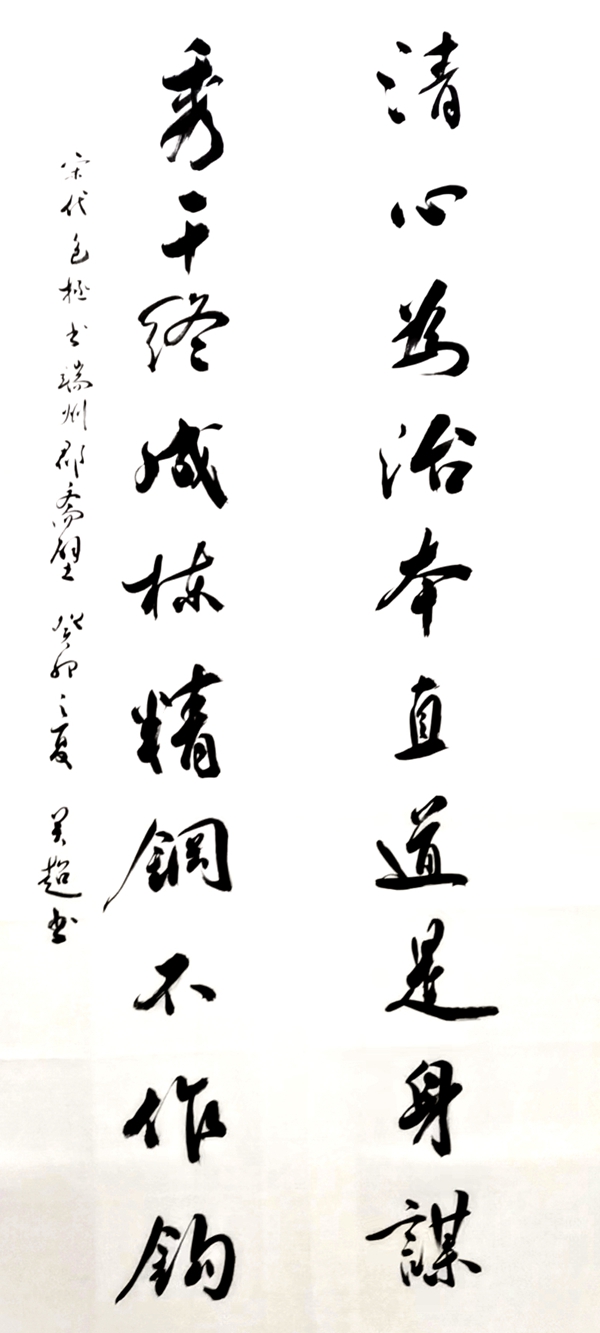 清心為治本直道是身謀
秀干終成棟精鋼不作鉤
宋代包拯書端州郡齋壁 癸卯之夏 吴超书